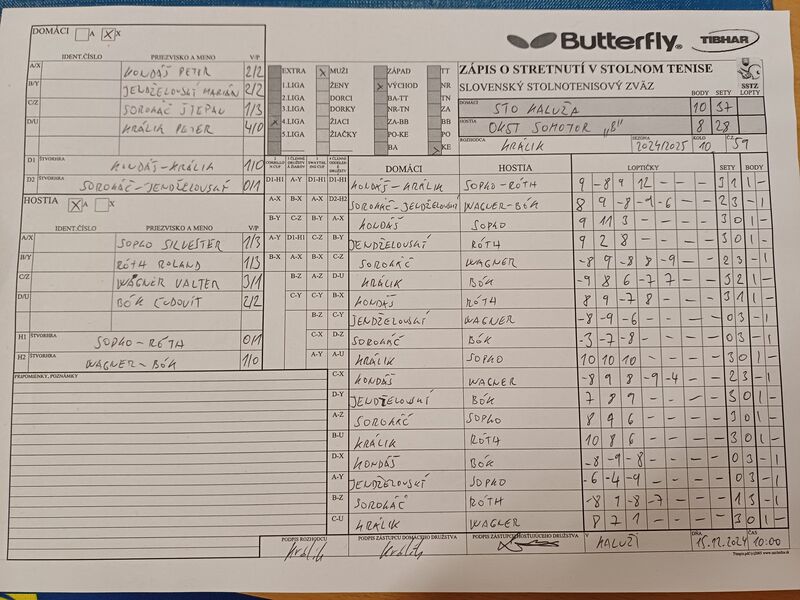 DOMÁCI A X X
Butterfly® TIBHAR
IDENT.ČÍSLO PRIEZVISKO A MENO V/P
A/X KONDÁŠ PETER 2/2
B/Y JENDŽELOVSKÝ MARIÁN 2/2
C/Z SOROKÁČ ŠTEPAN 1/3
D/U KRÁLIK PETER 4/0
EXTRA X MUŽI ZÁPAD TT
1.LIGA ŽENY X VÝCHOD NR
2.LIGA DORCI BA-TT TN
3.LIGA DORKY TN-NR ZA
X 4.LIGA ŽIACI ZA-BB BB
5.LIGA ŽIAČKY PO-KE PO
BA X KE
ZÁPIS O STRETNUTÍ V STOLNOM TENISE
SLOVENSKÝ STOLNOTENISOVÝ ZVÄZ
SSTZ
BODY SETY LOPTY
DOMÁCI STO KALUŽA 10 37
HOSTIA OKST SOMOTOR „B" 8 28
ROZHODCA KRÁLIK SEZÓNA 2024/2025 KOLO 10 Č.Z. 59
D1 ŠTVORHRA KONDÁŠ-KRÁLIK 1/0
D2 ŠTVORHRA SOROKÁČ-JENDŽELOVSKÝ 0/1
HOSTIA X A X
IDENT.ČÍSLO PRIEZVISKO A MENO V/P
A/X SOPKO SILVESTER 1/3
B/Y RÓTH ROLAND 1/3
C/Z WAGNER VALTER 3/1
D/U BÓK ĽUDOVÍT 2/2
H1 ŠTVORHRA SOPKO-RÓTH 0/1
H2 ŠTVORHRA WAGNER-BÓK 1/0
PRIPOMIENKY, POZNÁMKY
DOMÁCI HOSTIA LOPTIČKY SETY BODY
D1-H1 A-Y D1-H1 D1-H1 KONDÁŠ-KRÁLIK SOPKO-RÓTH 9 -8 9 12 - - - 3 1 1 -
A-X B-X A-X D2-H2 SOROKÁČ-JENDŽELOVSKÝ WAGNER-BÓK 8 9 -8 -9 -6 - - 2 3 - 1
B-Y C-Z B-Y A-X KONDÁŠ SOPKO 9 11 3 - - - - 3 0 1 -
A-Y D1-H1 C-Z B-Y JENDŽELOVSKÝ RÓTH 9 2 8 - - - - 3 0 1 -
B-X A-X B-X C-Z SOROKÁČ WAGNER -8 9 -8 8 -9 - - 2 3 - 1
B-Z A-Z D-U KRÁLIK BÓK -9 8 6 -7 7 - - 3 2 1 -
C-Y C-Y B-X KONDÁŠ RÓTH 8 9 -7 8 - - - 3 1 1 -
B-Z C-Y JENDŽELOVSKÝ WAGNER -8 -9 -6 - - - - 0 3 - 1
C-X D-Z SOROKÁČ BÓK -3 -7 -8 - - - - 0 3 - 1
A-Y A-U KRÁLIK SOPKO 10 10 10 - - - - 3 0 1 -
C-X KONDÁŠ WAGNER -8 9 8 -9 -4 - - 2 3 - 1
D-Y JENDŽELOVSKÝ BÓK 7 8 9 - - - - 3 0 1 -
A-Z SOROKÁČ SOPKO 8 4 6 - - - - 3 0 1 -
B-U KRÁLIK RÓTH 10 8 6 - - - - 3 0 1 -
D-X KONDÁŠ BÓK -8 -9 -8 - - - - 0 3 - 1
A-Y JENDŽELOVSKÝ SOPKO -6 -4 -9 - - - - 0 3 - 1
B-Z SOROKÁČ RÓTH -8 9 -8 -7 - - - 1 3 - 1
C-U KRÁLIK WAGNER 8 7 1 - - - - 3 0 1 -
PODPIS ROZHODCU Králik
PODPIS ZÁSTUPCU DOMÁCEHO DRUŽSTVA Králik
PODPIS ZÁSTUPCU HOSŤUJÚCEHO DRUŽSTVA
V KALUŽI DŇA 15.12.2024 ČAS 10:00